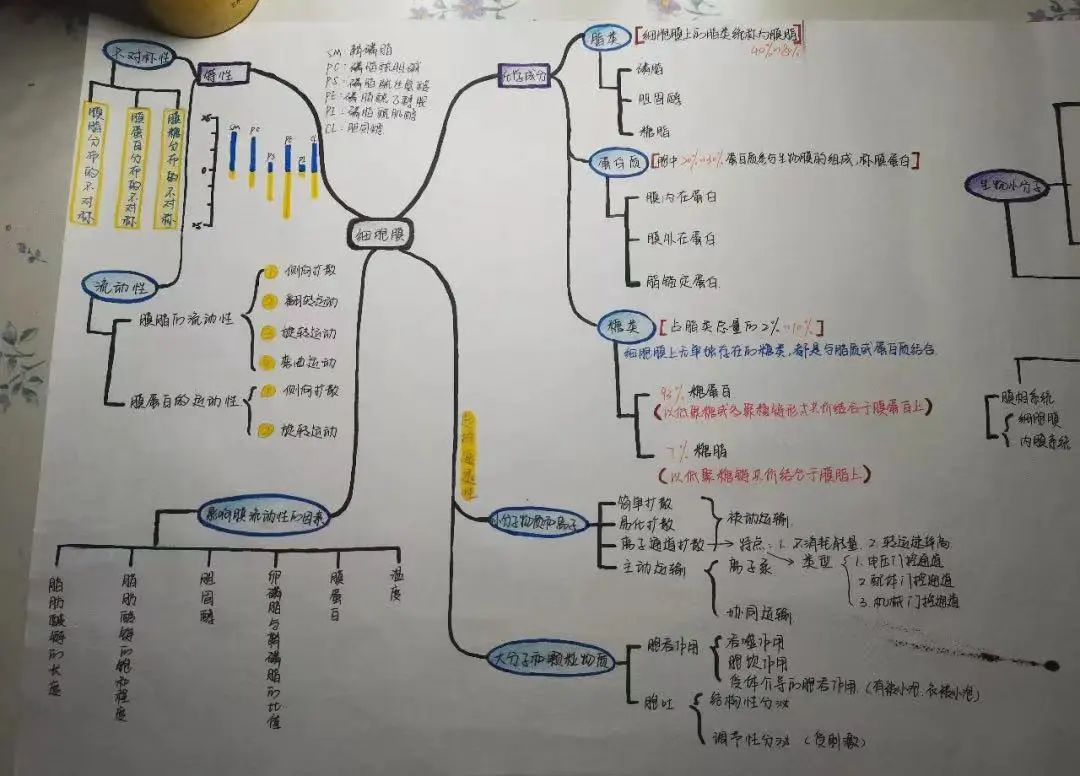 细胞膜
特性
不对称性
膜脂分布的不对称
膜蛋白分布的不对称
膜糖分布的不对称
SM:鞘磷脂
PC:磷脂酰胆碱
PS:磷脂酰丝氨酸
PE:磷脂酰乙醇胺
PI:磷脂酰肌醇
CL:胆固醇
SM
PC
PS
PE
PI
CL
0
流动性
膜脂的流动性
① 侧向扩散
② 翻转运动
③ 旋转运动
④ 弯曲运动
膜蛋白的运动性
① 侧向扩散
② 旋转运动
影响膜流动性的因素
脂肪酸链的长度
脂肪酸链的饱和程度
胆固醇
卵磷脂与鞘磷脂的比值
膜蛋白
温度
化学成分
脂类
[细胞膜上的脂类统称为膜脂]
磷脂
胆固醇
糖脂
蛋白质
蛋白质参与生物膜的组成,称膜蛋白]
膜内在蛋白
膜外在蛋白
脂锚定蛋白
糖类
[占脂类总量的2%~10%]
细胞膜上无单独存在的糖类,都是与脂质或蛋白质结合.
93% 糖蛋白
(以低聚糖或多聚糖链形式共价结合于膜蛋白上)
7% 糖脂
(以低聚糖链共价结合于膜脂上)
小分子物质和离子
简单扩散
易化扩散
离子通道扩散
主动运输
被动运输
特点:1.不消耗能量 2.转运速率高
类型
1.电压门控通道
2.配体门控通道
3.机械门控通道
离子泵
协同运输
大分子和颗粒物质
胞吞作用
吞噬作用
胞饮作用
受体介导的胞吞作用.(有被小泡.衣被小泡)
胞吐
结构性分泌
调节性分泌 (受刺激)
生物小分子
膜相系统
细胞膜
内膜系统